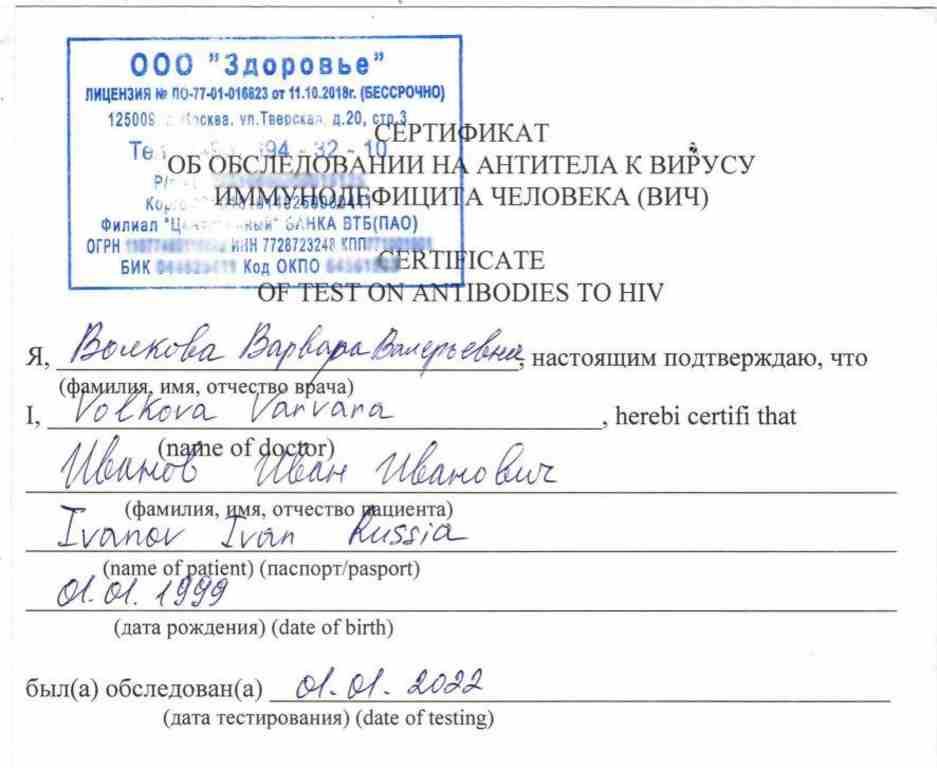 ООО "Здоровье"
ЛИЦЕНЗИЯ № ПО-77-01-016823 от 11.10.2018г. (БЕССРОЧНО)
125009 Москва, ул.Тверская, д.20, стр.3
394 - 32 - 10
Филиал БАНКА ВТБ(ПАО)
ОГРН ИНН 7728723248 КПП
БИК Код ОКПО
СЕРТИФИКАТ
ОБ ОБСЛЕДОВАНИИ НА АНТИТЕЛА К ВИРУСУ
ИММУНОДЕФИЦИТА ЧЕЛОВЕКА (ВИЧ)
CERTIFICATE
OF TEST ON ANTIBODIES TO HIV
Я, Волкова Варвара Валерьевна, настоящим подтверждаю, что
(фамилия, имя, отчество врача)
I, Volkova Varvara, herebi certifi that
(name of doctor)
Иванов Иван Иванович
(фамилия, имя, отчество пациента)
Ivanov Ivan Russia
(name of patient) (паспорт/pasport)
01.01.1999
(дата рождения) (date of birth)
был(а) обследован(а) 01.01.2022
(дата тестирования) (date of testing)